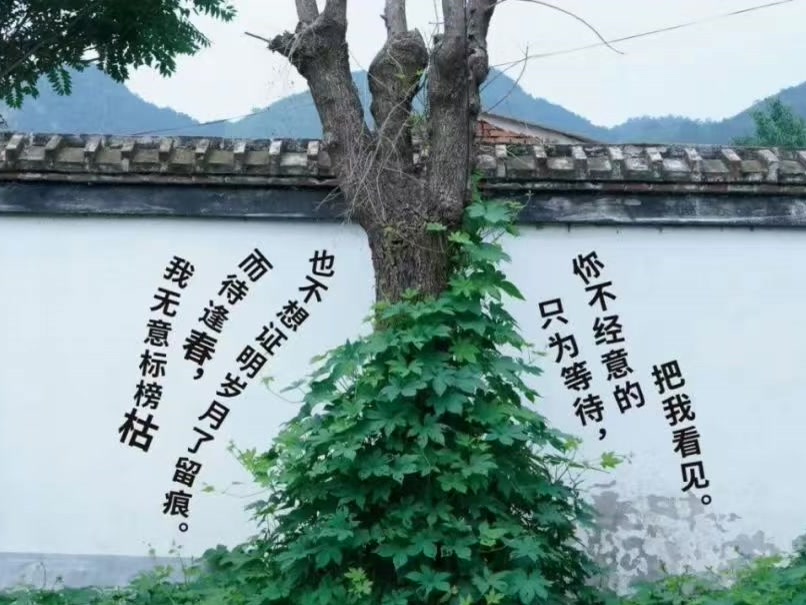 我无意标榜枯
而待逢春，
也不想证明岁月了留痕。
只为等待，
你不经意的
把我看见。